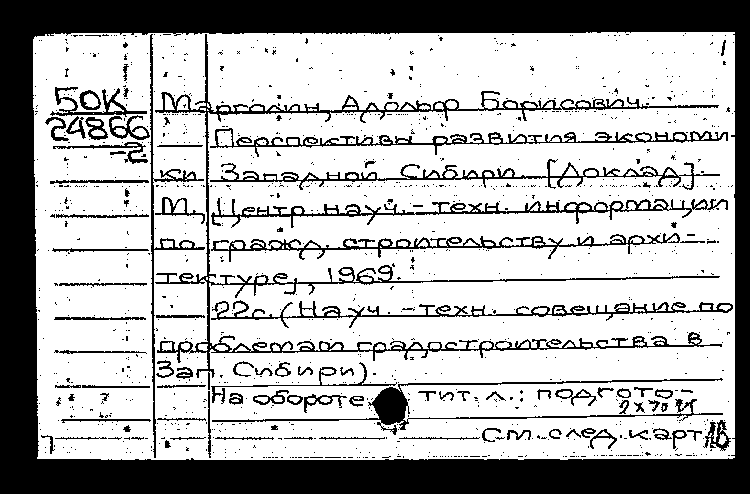 1
50К Марголин, Адольф Борисович.
24866 Перспективы развития экономи-
-2
ки Западной Сибири. [Доклад].
М., [Центр науч.-техн. информации
по гражд. строительству и архи-
тектуре], 1969.
22с. (Науч.-техн. совещание по
проблемам градостроительства в
Зап. Сибири).
На обороте тит. л.: подгото-
См. след. карт